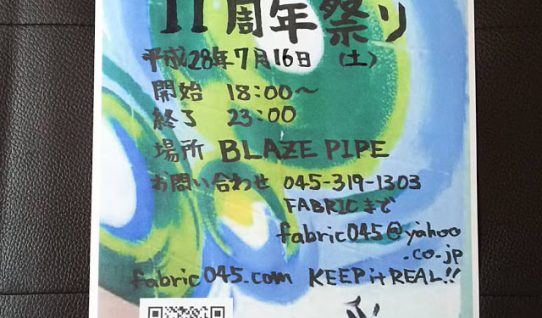 11周年祭り
平成28年7月16日 (土)
開始 18:00〜
終了 23:00
場所 BLAZE PIPE
お問い合わせ 045-319-1303
FABRICまで
fabric045@yahoo
.co.jp
fabric045.com KEEP it REAL!!